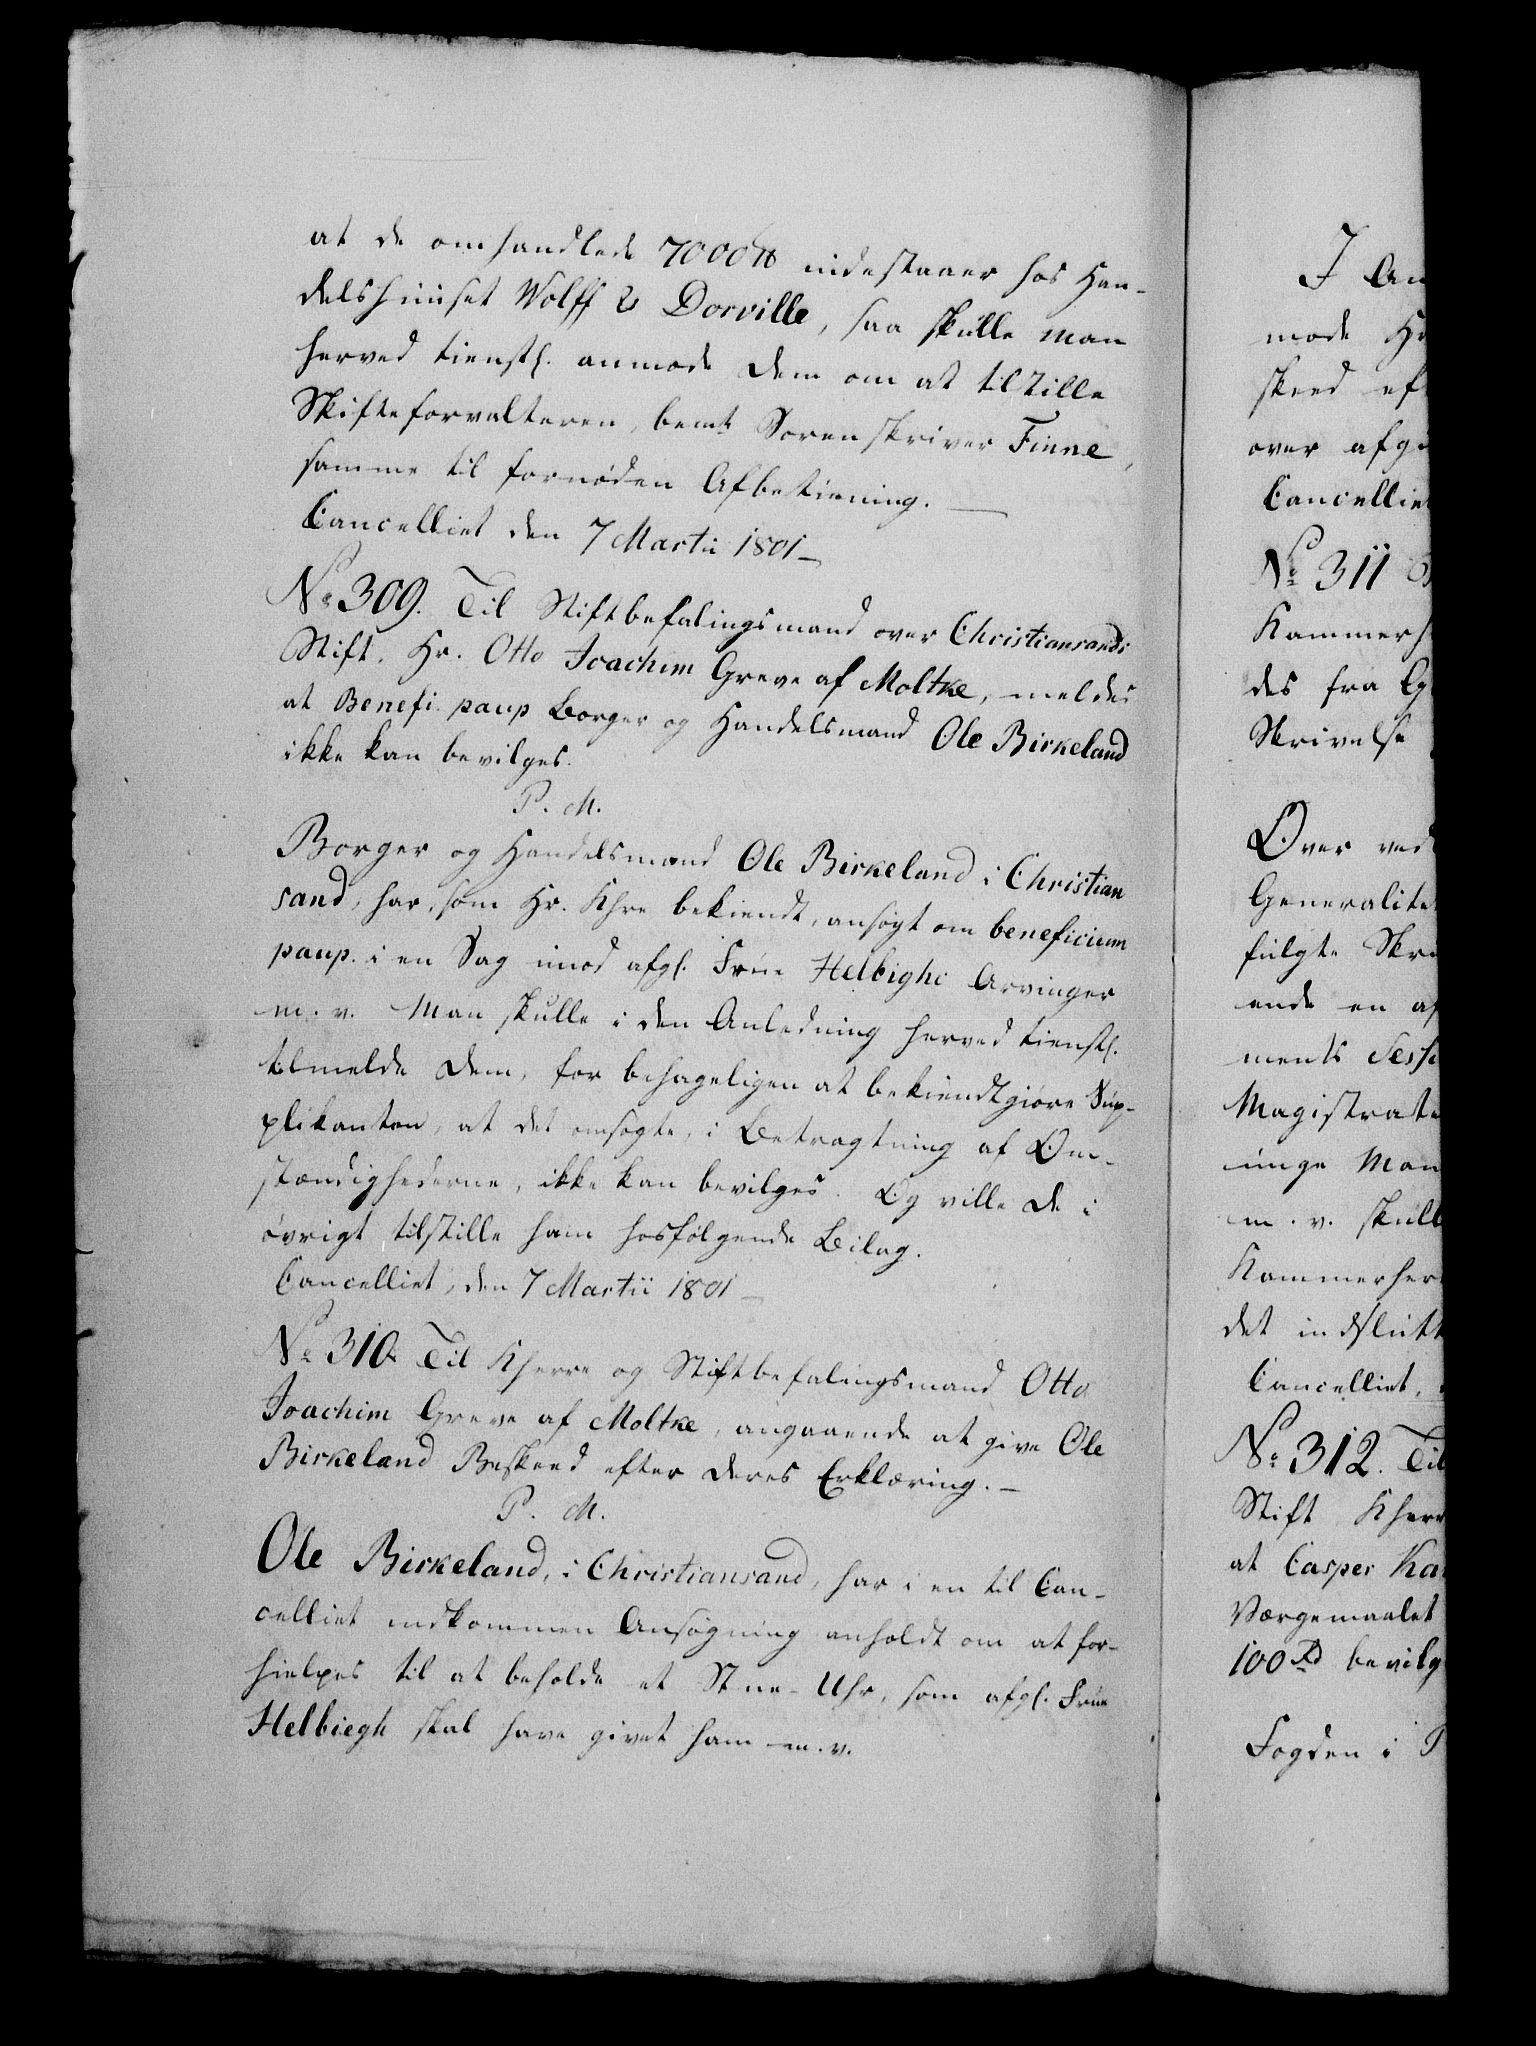 at de omhandlede 7000 ₶ indestaaer hos Han-
delshuuset Wolff & Dorville, saa skulle man
herved tienstl. anmode Dem om at tilstille
Skifteforvalteren, bemte Sorenskriver Finne,
samme til fornøden Afbetiening.
Cancelliet den 7 Martii 1801
No 309. Til Stiftbefalingsmand over Christiansands
Stift, Hr. Otto Joachim Greve af Moltke, meldes
at Benefi. paup Borger og Handelsmand Ole Birkeland
ikke kan bevilges.
P. M.
Borger og Handelsmand Ole Birkeland i Christian
sand, har, som Hr. Khre bekiendt, ansøgt om beneficium
paup. i en Sag imod afgl. Frue Helbighs Arvinger
m. v. Man skulle i den Anledning herved tienstl.
tilmelde Dem, for behageligen at bekiendtgiøre Sup-
plikanten, at det ansøgte, i Betragtning af Om-
stændighederne, ikke kan bevilges. Og ville De i
øvrigt tilstille ham hosfølgende Bilag.
Cancelliet, den 7 Martii 1801
No 310. Til Kherre og Stiftbefalingsmand Otto
Joachim Greve af Moltke, angaaende at give Ole
Birkeland Beskeed efter Deres Erklæring.
P. M.
Ole Birkeland, i Christiansand, har i en til Can-
celliet indkommen Ansøgning anholdt om at for-
hielpes til at beholde et Stue-Uhr, som afgl. Frue
Helbiegh skal have givet ham m. v.
I An
mode Hr
skeed ef
over afg
Cancelliet
No 311
Kammerh
des fra G
Skrivelse
Over ved
Generalitet
fulgte Skri
ende en af
ments Sessi
Magistrate
unge Man
m. v. skull
Kammerher
det indslutt
Cancelliet,
No 312. Til
Stift Kherr
at Casper Ka
Værgemaalet
100 Rd bevilg
Fogden i